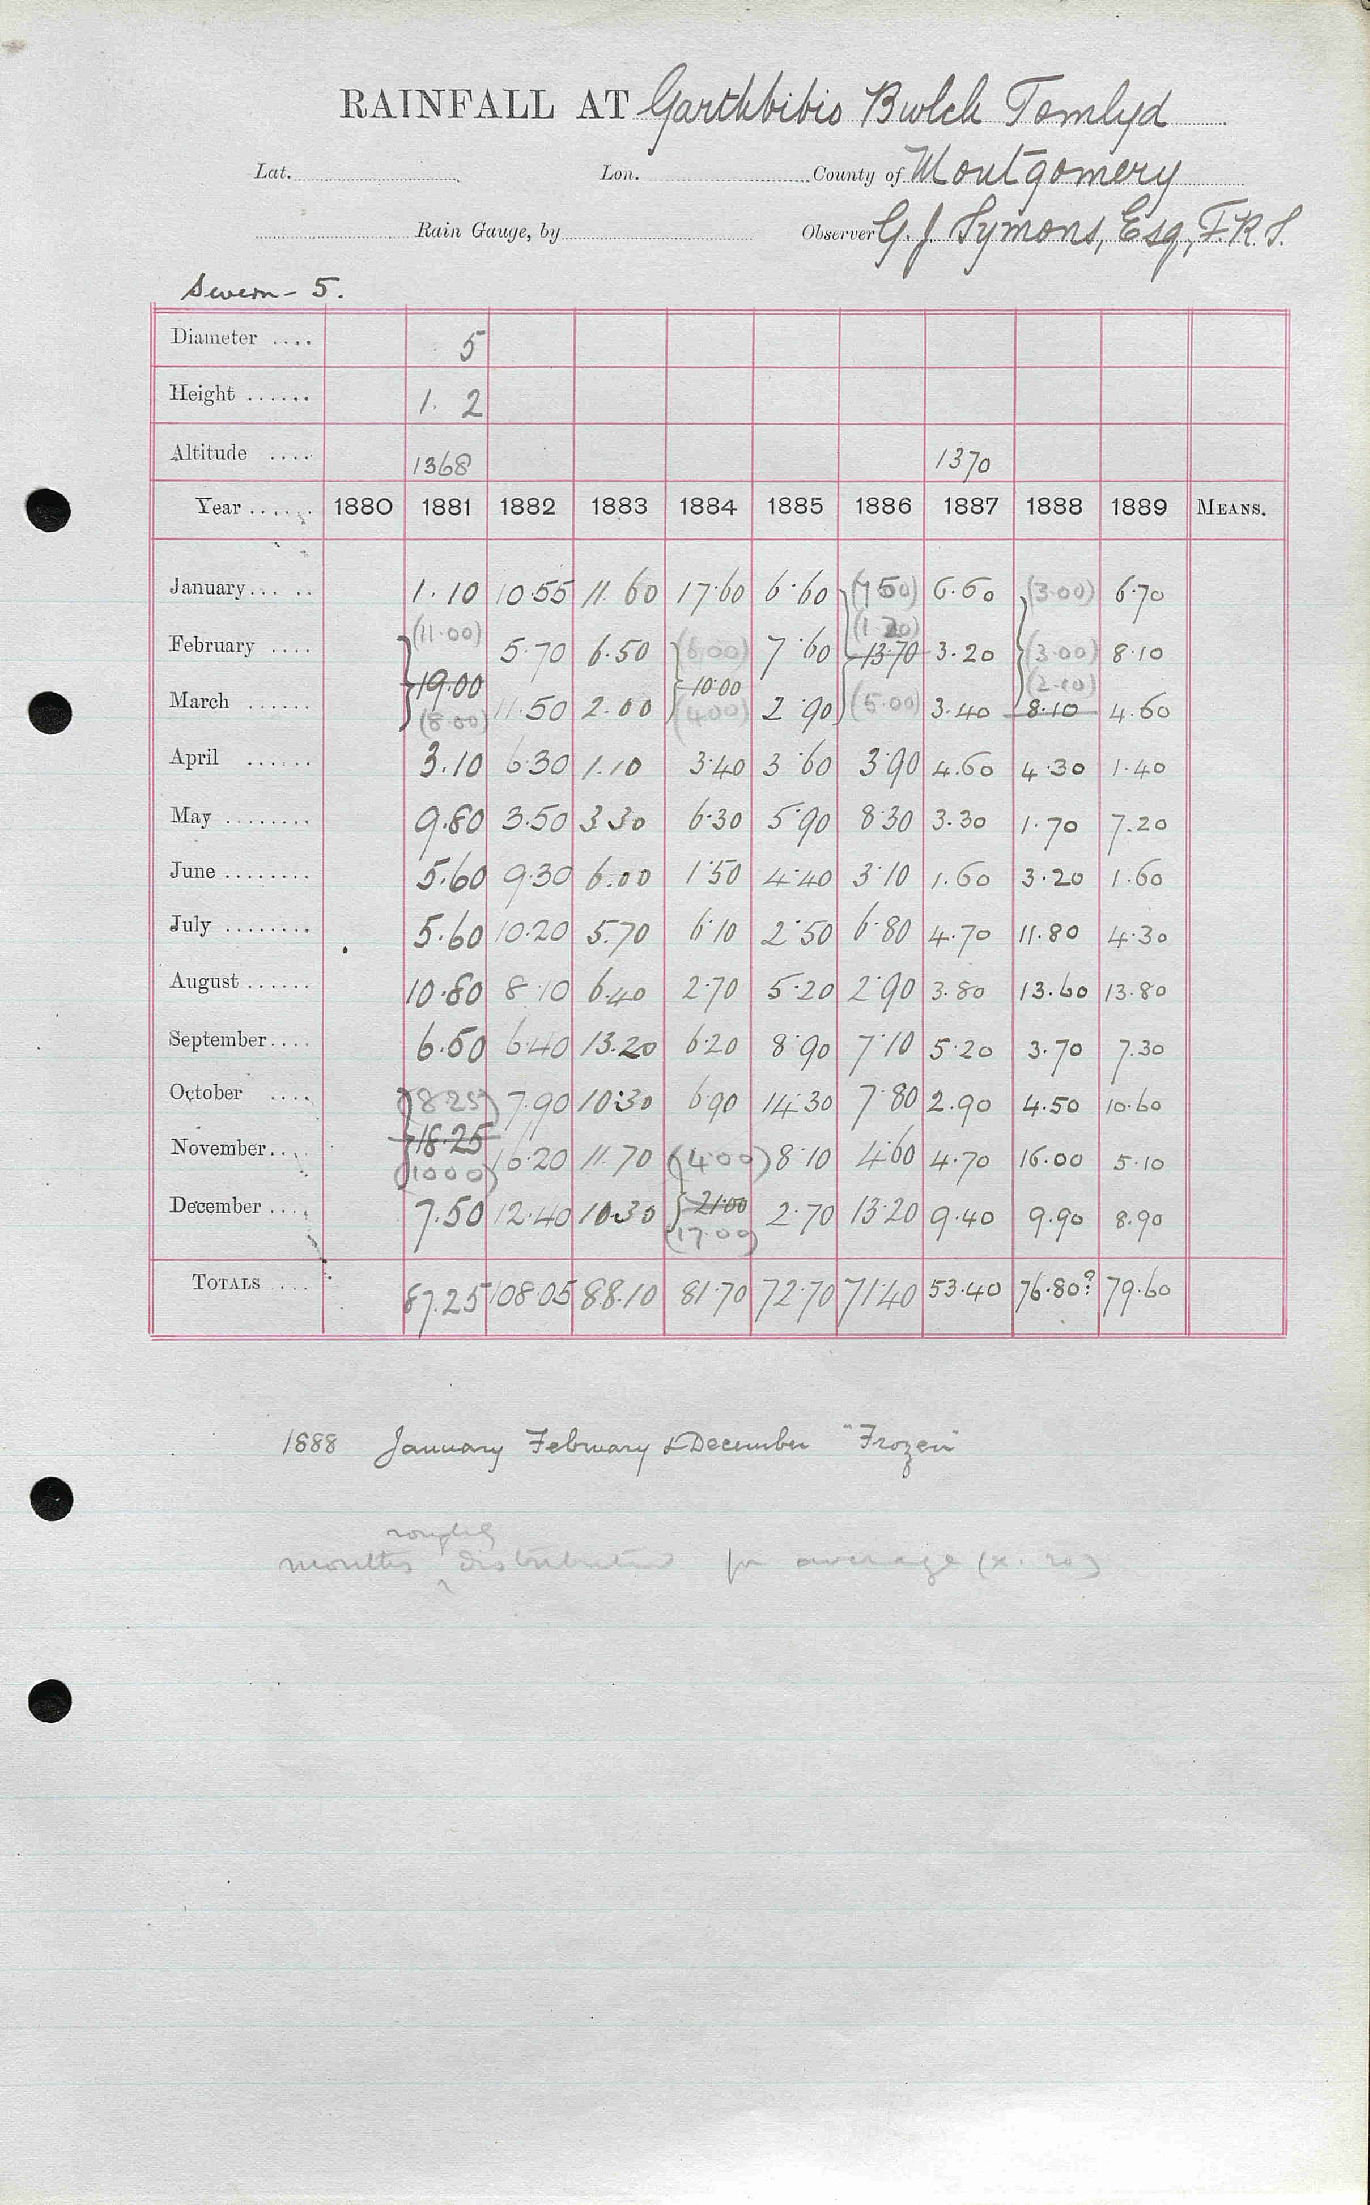 RAINFALL AT Garthbibio Bwlch Tomlyd
Lat. Lon. County of Montgomery
Rain Gauge, by Observer G. J. Symons, Esq., F.R.S.
Severn - 5.
Diameter .... 5
Height ...... 1. 2
Altitude .... 1368 1370
Year ...... 1880 1881 1882 1883 1884 1885 1886 1887 1888 1889 MEANS.
January ..... 1.10 10.55 11.60 17.60 6.60 (7.50) 6.60 (3.00) 6.70
(11.00) (1.20)
February .... 5.70 6.50 (6.00) 7.60 13.70 3.20 (3.00) 8.10
19.00 10.00 (2.10)
March ...... (8.00) 11.50 2.00 (4.00) 2.90 (5.00) 3.40 8.10 4.60
April ...... 3.10 6.30 1.10 3.40 3.60 3.90 4.60 4.30 1.40
May ........ 9.80 3.50 3.30 6.30 5.90 8.30 3.30 1.70 7.20
June ........ 5.60 9.30 6.00 1.50 4.40 3.10 1.60 3.20 1.60
July ........ 5.60 10.20 5.70 6.10 2.50 6.80 4.70 11.80 4.30
August ...... 10.80 8.10 6.40 2.70 5.20 2.90 3.80 13.60 13.80
September .... 6.50 6.40 13.20 6.20 8.90 7.10 5.20 3.70 7.30
October .... (8.25) 7.90 10.30 6.90 14.30 7.80 2.90 4.50 10.60
18.25
November .... (10.00) 16.20 11.70 (4.00) 8.10 4.60 4.70 16.00 5.10
December .... 7.50 12.40 10.30 21.00 2.70 13.20 9.40 9.90 8.90
(17.00)
TOTALS .... 87.25 108.05 88.10 81.70 72.70 71.40 53.40 76.80? 79.60
1888 January February & December "Frozen"
roughly
months distributed for average